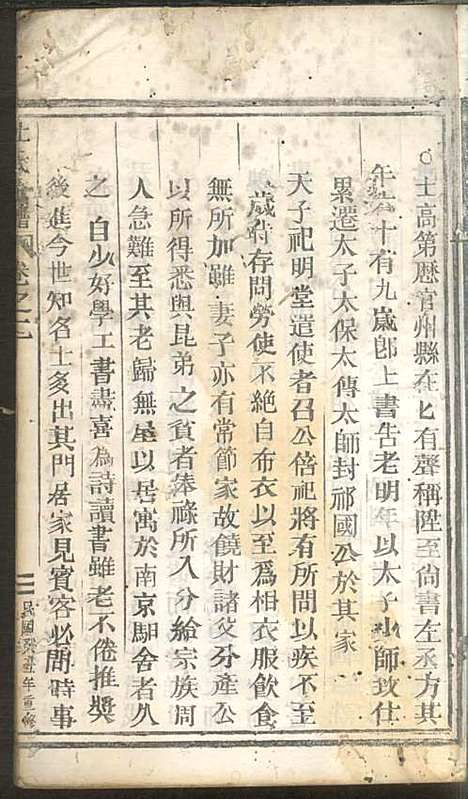 士高第歷官州縣在匕有聲稱陞至尚書左丞方其
年六十有九歲卽上書告老明年以太子少師致仕
累遷太子太保太傅太師封祁國公於其家
天子祀明堂遣使者召公倍祀將有所問以疾不至
歲時存問勞使不絕自布衣以至爲相衣服飲食
無所加雖妻子亦有常節家故饒財諸父分產公
以所得悉與昆弟之貧者俸祿所入分給宗族周
人急難至其老歸無屋以居寓於南京馹舍者久
之自少好學工書畵喜為詩讀書雖老不倦推奬
後進今世知名士多出其門居家見賓客必問時事
卷之
民國癸丑年重修